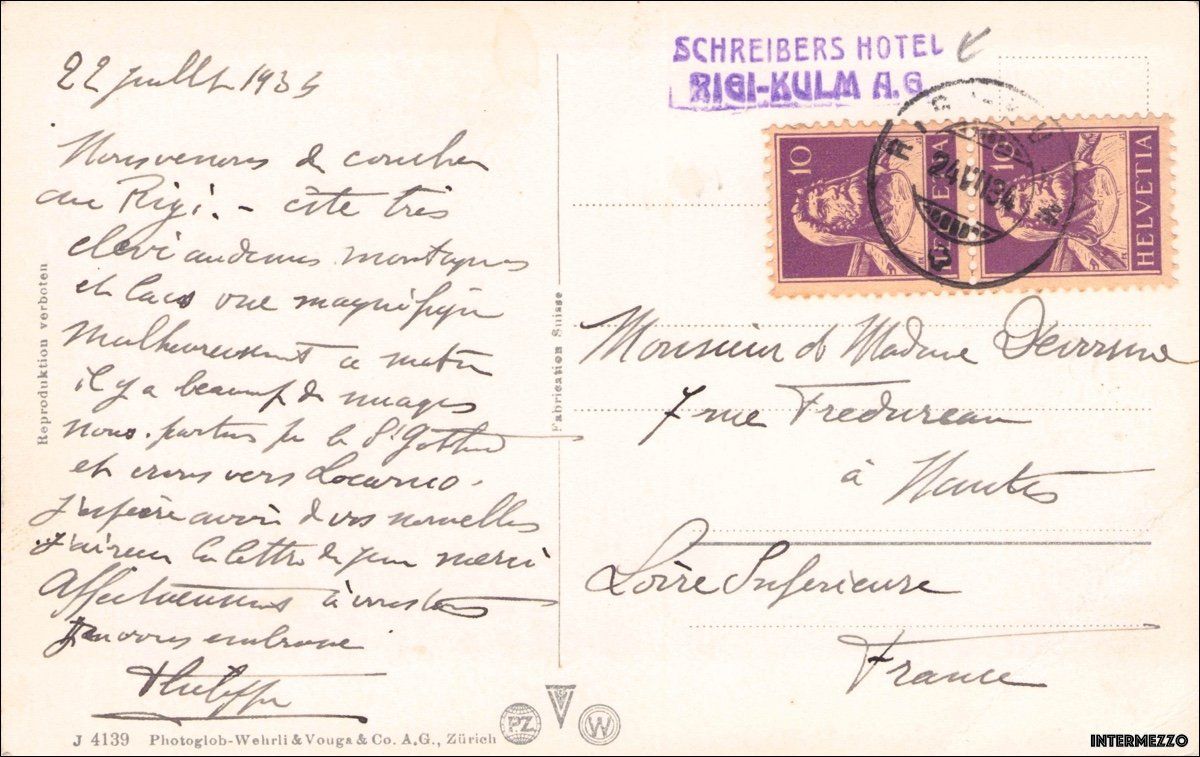 22 juillet 1934
SCHREIBERS HOTEL
RIGI-KULM A.G.
10 HELVETIA
10 HELVETIA
24 VII 34
Nous venons de coucher
au Rigi. - cite très
montagnes
et lacs vue magnifique
Malheureusement ce matin
il y a beaucoup de nuages
nous partons par le St Gothard
et irons vers Locarno.
J'espère avoir de vos nouvelles
J'ai reçu la lettre de Jean merci
Affectueusement à vous tous
Je vous embrasse
Philippe
Monsieur et Madame
7 rue Fredureau
à Nantes
Loire Inferieure
France
Reproduktion verboten
Fabrication Suisse
J 4139 Photoglob-Wehrli & Vouga & Co. A.G., Zürich
PZ
W
INTERMEZZO